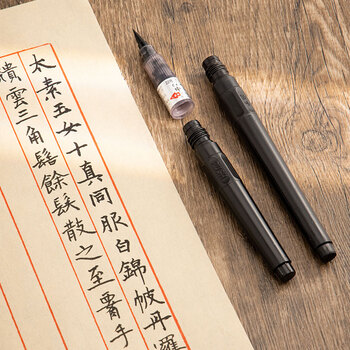 太素玉女十真同服白錦帔丹羅
雲三角髻餘髮散之至手